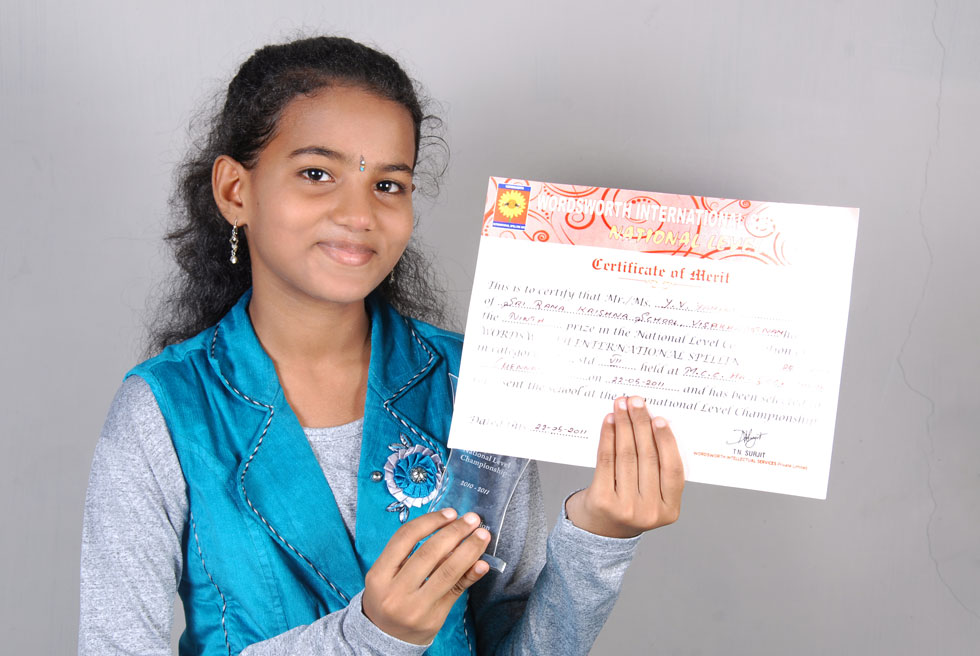 WORDSWORTH INTERNATIONAL
NATIONAL LEVEL
Certificate of Merit
This is to certify that Mr./Ms. Y.V.
of SAI RAMA KRISHNA SCHOOL, VISAKH
the NINTH prize in the National Level
WORDS INTERNATIONAL SPELLIN
in categor std VII held at M.C.C.
CHENNAI on 22-05-2011 and has been selected to
sent the school at the International Level Championship
Dated 22-05-2011
TN SURJIT
WORDSWORTH INTELLECTUAL SERVICES Private Limited
National Level
Championship
2010 - 2011